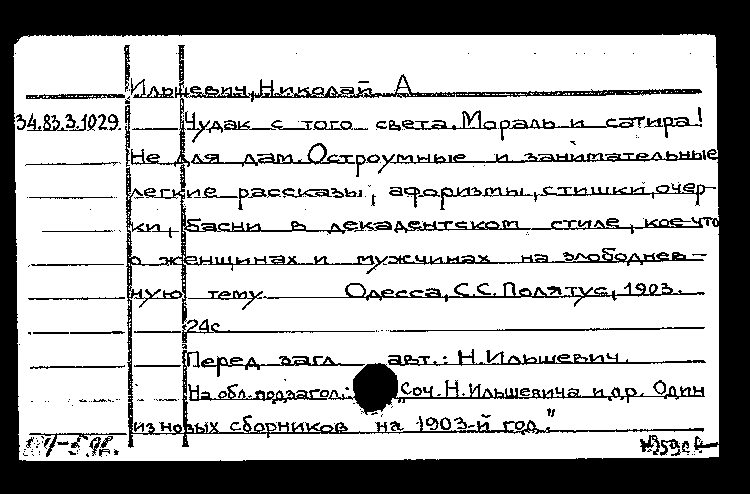 Ильшевич, Николай А
34.83.3.1029. Чудак с того света. Мораль и сатира!
Не для дам. Остроумные и занимательные
легкие рассказы, афоризмы, стишки, очер-
ки, басни в декадентском стиле, кое-что
о женщинах и мужчинах на злободнев-
ную тему. Одесса, С.С. Полятус, 1903.
24с.
Перед загл. авт.: Н. Ильшевич.
На обл. подзагол.: "Соч. Н. Ильшевича и др. Один
из новых сборников на 1903-й год"